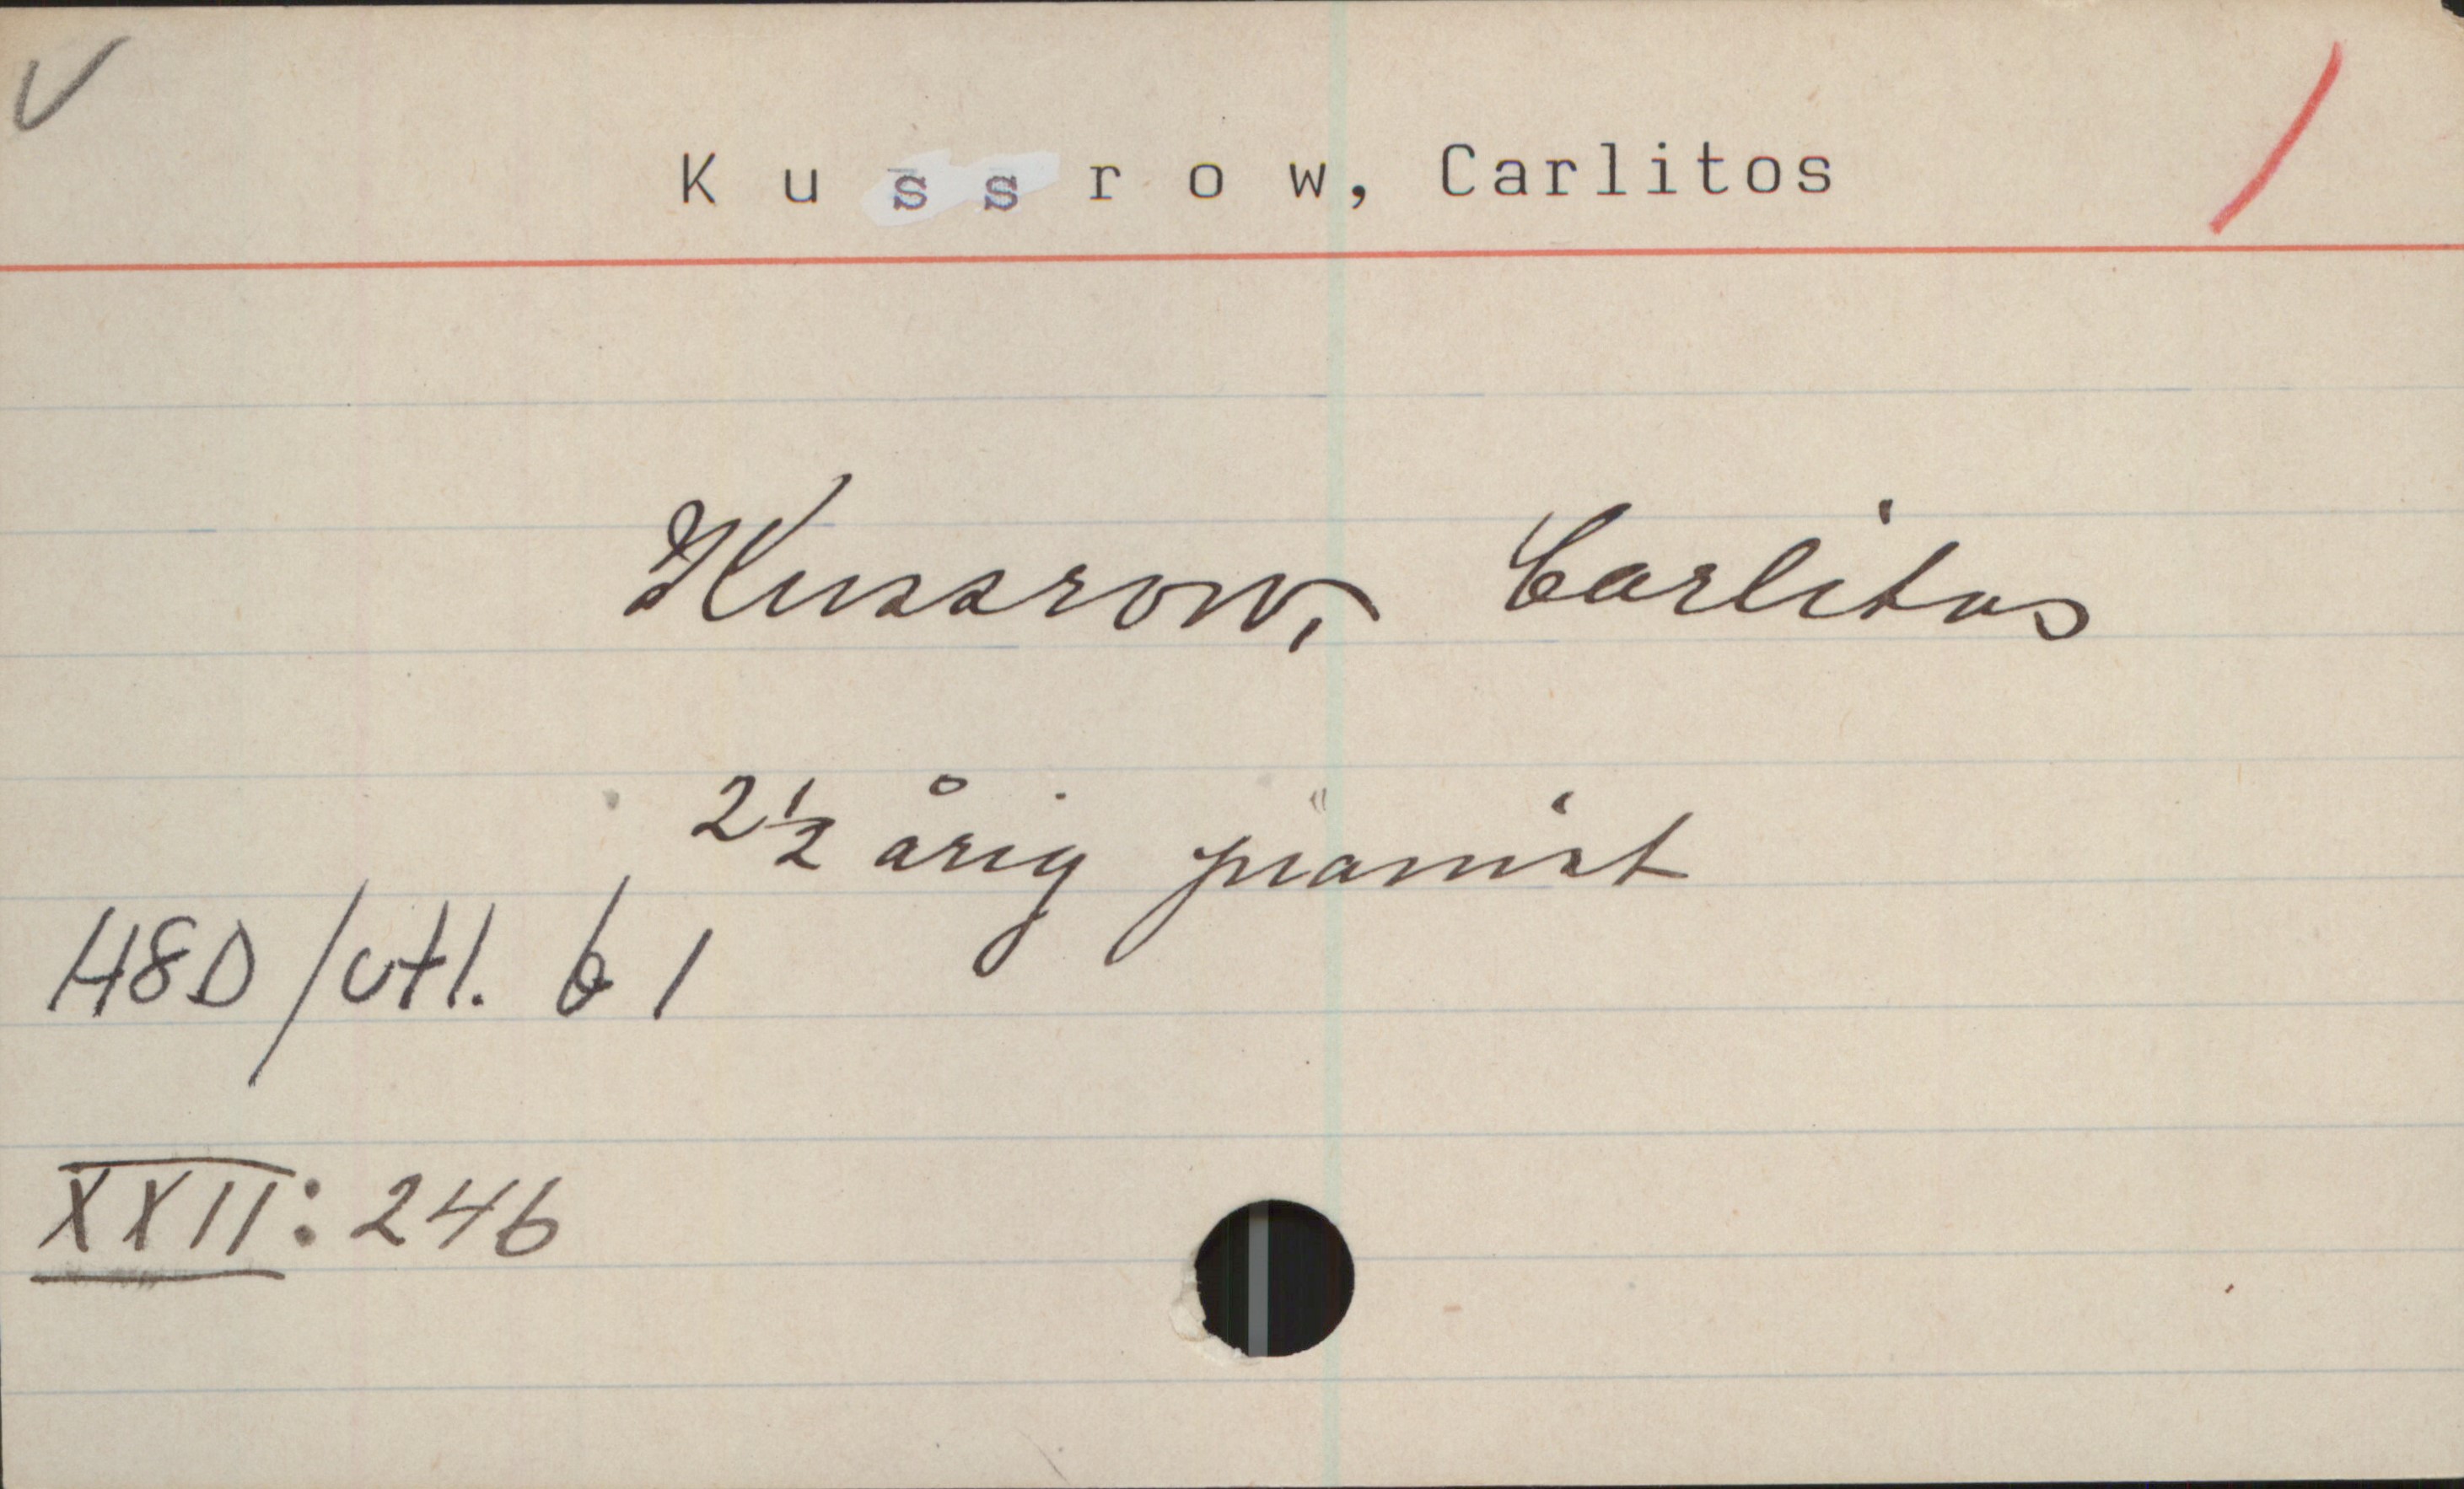 K u s s r o w, Carlitos
Kussrow, Carlitos
2½ årig pianist
H8D/utl. b 1
XXII: 246